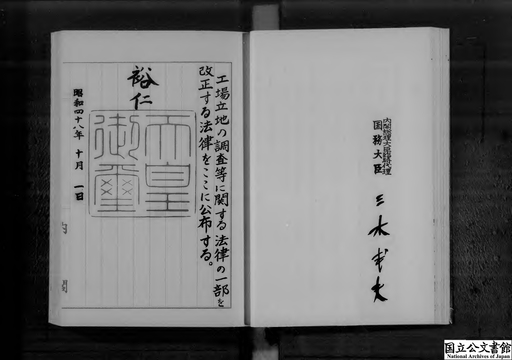 工場立地の調査等に関する法律の一部を
改正する法律をここに公布する。
裕仁
天皇
御璽
昭和四十八年 十月 一日
内閣総理大臣臨時代理
国務大臣 三木武夫
国立公文書館
National Archives of Japan